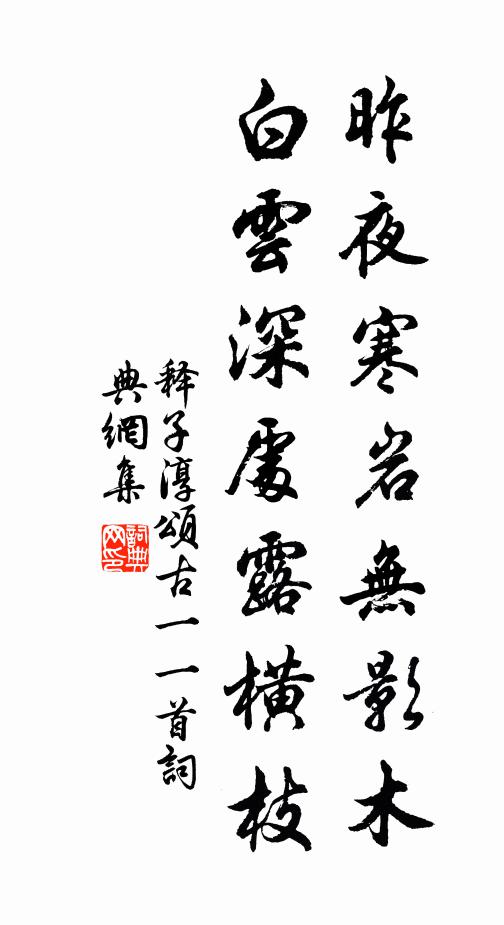 昨夜寒岩無影木
白雲深處露橫枝
释子淳頌古一一首詞
典網集
詞典網印